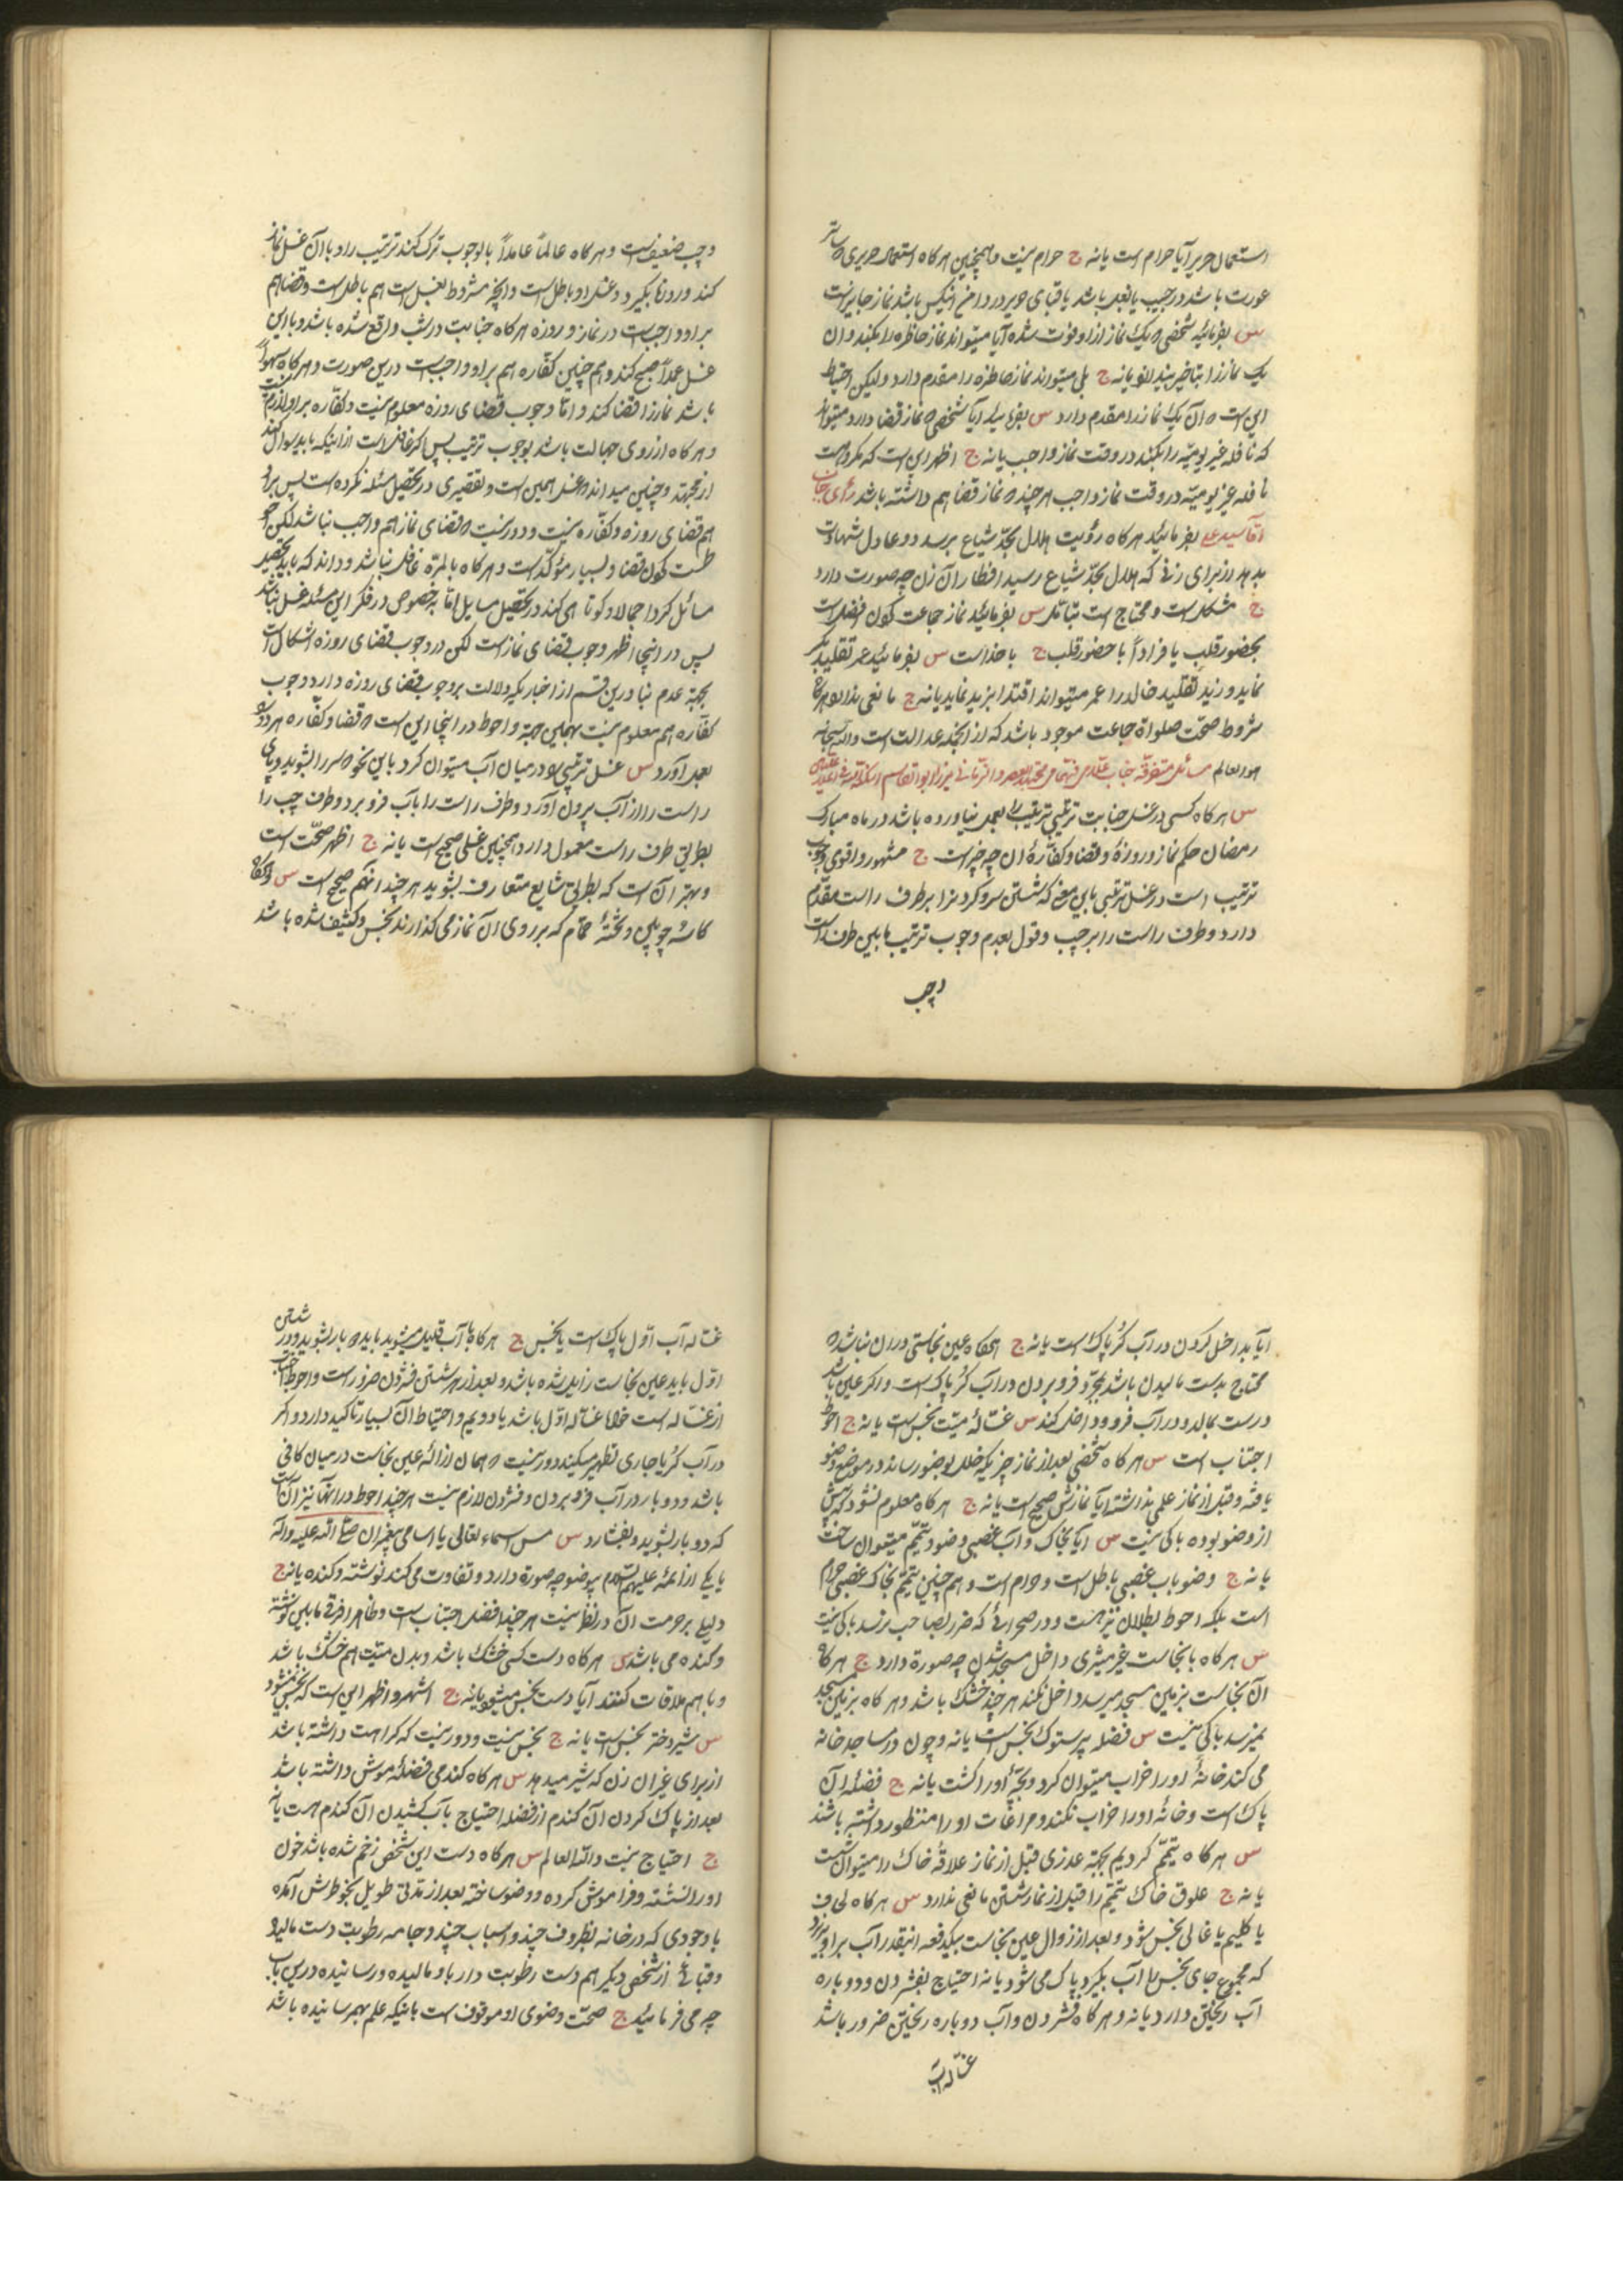 استعمال حریر آیا حرام است یا نه ج حرام نیست و همچنین هرکاه استعمال حریری که ساتر
عورت باشد در جیب یا بغل باشد یا قبای حریر در دامن انکس باشد نماز جایز است
س بفرمائید شخصی که یک نماز از او فوت شده آیا میتواند نماز حاضره را بکند و ان
یک نماز را بتاخیر بیندازد یا نه ج بلی میتواند نماز حاضره را مقدم دارد ولیکن احتیاط
این است که ان یک نماز را مقدم دارد س بفرمائید آیا شخصی که نماز قضا دارد میتواند
که نافله غیر یومیّه را بکند در وقت نماز واجب یا نه ج اظهر این است که مکروهست
نافله غیر یومیّه در وقت نماز واجب هرچند که نماز قضا هم داشته باشد رأی جناب
آقا سید علی بفرمائید هرکاه رؤیت هلال بحدّ شیاع برسد دو عادل شهادت
بدهد از برای زنی که هلال بحدّ شیاع رسید افطار ان زن چه صورت دارد
ج مشکل است و محتاج است بتامّل س بفرمائید نماز جماعت کردن افضل است
بحضور قلب یا فراداً با حضور قلب ج با خداست س بفرمائید عمر تقلید بکر
نماید و زید تقلید خالد را عمر میتواند اقتدا بزید نماید یا نه ج مانعی ندارد هرکاه
شروط صحّت صلواة جماعت موجود باشد که از انجمله عدالت است والله سبحانه
هو العالم مسائل متفرقه جناب میرزا ابوالقاسم
س هرکاه کسی در غسل جنابت ترتیبی ترتیب را بعمل نیاورده باشد در ماه مبارک
رمضان حکم نماز و روزهٔ و قضا و کفّارهٔ ان چه چیز است ج مشهور و اقوی وجوب
ترتیب است در غسل ترتیبی باین معنی که شستن سر و کردن را بر طرف راست مقدّم
دارد و طرف راست را بر چپ و قول بعدم وجوب ترتیب مابین طرف راست
و چپ
و چپ ضعیف است و هرکاه عالماً عامداً بالوجوب ترک کند ترتیب را و با ان غسل نماز
کند و روزها بگیرد و غسل او باطل است و آنچه مشروط بغسل است هم باطل است و قضا هم
بر او واجب است در نماز و روزه هرکاه جنابت در شب واقع شده باشد و با این
غسل عمداً صبح کند و هم چنین کفّاره هم بر او واجب است درین صورت و هرکاه سهواً
باشد نماز را قضا کند و امّا وجوب قضای روزه معلوم نیست و کفّاره بر او لازم نیست
و هرکاه از روی جهالت باشد بوجوب ترتیب پس اکر غافل است از اینکه باید سوال کند
از مجتهد و چنین میداند که غسل همین است و تقصیری در تحصیل مسئله نکرده است پس بر او
هم قضای روزه و کفّاره نیست و دور نیست که قضای نماز هم واجب نباشد لکن احو
طست کردن قضا و بسیار مؤکّد است و هرکاه بالمرّه غافل نباشد و داند که باید تحصیل
مسائل کرد اجمالا و کوتاهی کند در تحصیل مسایل امّا بخصوص در فکر این مسئله غسل نباشد
پس در اینجا اظهر وجوب قضای نماز است لکن در وجوب قضای روزه اشکال است
بجهة عدم بنا درین قسم از اخباریکه دلالت بر وجوب قضای روزه دارد و وجوب
کفّاره هم معلوم نیست بهمین جهة و احوط در اینجا این است که قضا و کفّاره هر دو را
بعمل آورد س غسل ترتیبی را در میان آب میتوان کرد باین نحو که سر را بشوید و پای
راست را از آب بیرون آورد و طرف راست را بآب فرو برد و طرف چپ را
بطریق طرف راست معمول دارد همچنین غسلی صحیح است یا نه ج اظهر صحّت است
و بهتر آن است که بطریق شایع متعارف بشوید هرچند انهم صحیح است س هرکاه
کاسهٔ چوبین و تختهٔ حمّام که بر روی ان نماز می کذارند نجس و کثیف شده باشد
آیا بداخل کردن در آب کُر پاک است یا نه ج هرکاه عین نجاستی در ان نباشد که
محتاج بدست مالیدن باشد بمجرّد فرو بردن در آب کُر پاک است و اکر عین باشد
درست بمالد و در آب فرو و داخل کند س غسّالهٔ میّت نجس است یا نه ج احوط
اجتناب است س هرکاه شخصی بعد از نماز چیزیکه خلل بوضو رساند در موضع وضو
یافته و قبل از نماز علمی نداشته آیا نمازش صحیح است یا نه ج هرکاه معلوم نشود که پیش
از وضو بوده باکی نیست س آیا بخاک و آب غصبی وضو و تیمّم میتوان ساخت
یا نه ج وضو باب غصبی باطل است و حرام است و هم چنین تیمّم بخاک غصبی حرام
است بلکه احوط بطلان نیز هست و در صحرائی که ضرر بصاحب نرسد باکی نیست
س هرکاه با نجاست غیر میسّری داخل مسجد شدن چه صورة دارد ج هرکاه
ان نجاست بزمین مسجد میرسد داخل نکند هرچند خشک باشد و هرکاه بزمین مسجد
نمیرسد باکی نیست س فضله پرستوک نجس است یا نه و چون در مساجد خانه
می کند خانهٔ او را خراب میتوان کرد و بچّهٔ او را کشت یا نه ج فضله ان
پاک است و خانهٔ او را خراب نکند و مراعات او را منظور داشته باشند
س هرکاه تیمّم کردیم بجهة عذری قبل از نماز علاقهٔ خاک را میتوان شست
یا نه ج علوق خاک تیمّم را قبل از نماز شستن مانعی ندارد س هرکاه لحاف
یا کلیم یا غالی نجس شود و بعد از زوال عین نجاست بیکدفعه انقدر آب بر او بریزد
که مجموع جای نجس را آب بگیرد پاک می شود یا نه احتیاج بفشردن و دوباره
آب ریختن دارد یا نه و هرکاه فشردن و آب دوباره ریختن ضرور باشد
غسّاله آب
غسّاله آب اوّل پاک است یا نجس ج هرکاه با آب قلیل میشوید باید دو بار بشوید و در شستن
اوّل باید عین نجاست زایل شده باشد و بعد از هر شستن فشردن ضرور است و احوط اجتناب
از غسّاله است خواه غسّاله اوّل باشد یا دویم و احتیاط ان بسیار تاکید دارد و اکر
در آب کُر یا جاری تطهیر میکنند دور نیست که همان ازالهٔ عین نجاست در میان کافی
باشد و دوبار در آب فرو بردن و فشردن لازم نیست هرچند احوط در انها نیز ان است
که دو بار بشوید و بفشارد س مس اسماء تعالی یا اسامی پیغمبران صلّی الله علیه و اله
یا یکی از ائمّه علیهم السلام بیوضو چه صورة دارد و تفاوت می کند نوشته و کنده یا نه ج
دلیلی بر حرمت ان در نظر نیست هرچند افضل اجتناب است و ظاهرا فرقی مابین نوشته
و کنده می باشد س هرکاه دست کسی خشک باشد و بدن میّت هم خشک باشد
و با هم ملاقات کنند آیا دست نجس میشود یا نه ج اشهر و اظهر این است که نجس نمیشود
س شیر دختر نجس است یا نه ج نجس نیست و دور نیست که کراهت داشته باشد
از برای غیر ان زن که شیر میدهد س هرکاه کندمی فضلهٔ موش داشته باشد
بعد از پاک کردن ان کندم از فضله احتیاج بآب کشیدن ان کندم هست یا نه
ج احتیاج نیست والله العالم س هرکاه دست این شخص زخم شده باشد خون
او را نشسته و فراموش کرده و وضو ساخته بعد از مدّتی طویل بخواطرش آمده
با وجودی که در خانه بظروف چند و اسباب چند و جامه رطوبت دست مالید
وقتی از شخص دیگر هم دست رطوبت دار باو مالیده و رسانیده درین باب
چه می فرمائید ج صحّت وضوی او موقوف است باینکه علم بهمرسانیده باشد